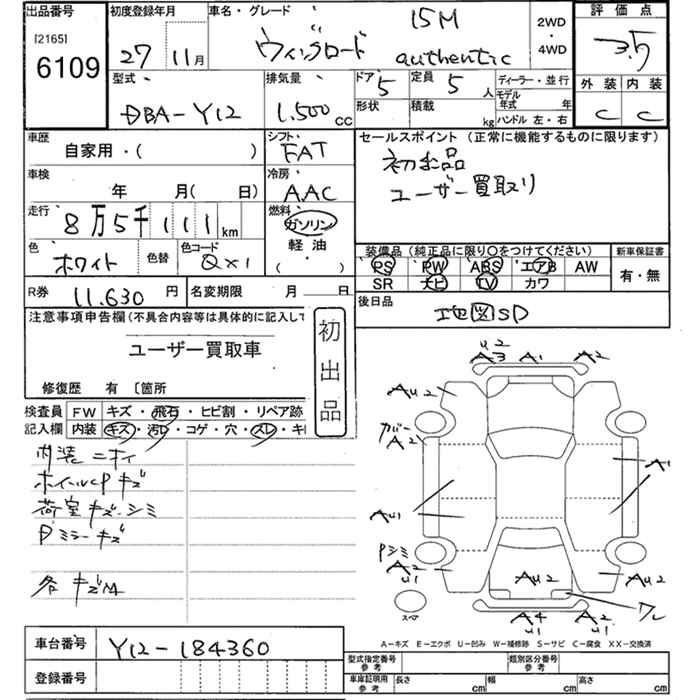 出品番号 初度登録年月 車名・グレード 15M 評価点
[2165] 27 11月 ウィングロード authentic 2WD・4WD 3.5
6109
型式 排気量 ドア 定員 ディーラー・並行 外装 内装
DBA-Y12 1,500cc 5 5人 モデル年式 年 C C
形状 積載 kg ハンドル 左・右
車歴 シフト セールスポイント (正常に機能するものに限ります)
自家用・( ) FAT 初出品
車検 冷房 ユーザー買取り
年 月( 日) AAC
走行 燃料
8万5千111km ガソリン
軽油
( )
色 色替 色コード 装備品 (純正品に限り○をつけてください) 新車保証書
ホワイト QX1 PS PW ABS エアB AW 有・無
SR ナビ TV カワ
R券 11,630円 名変期限 月 日 後日品
地図SD
注意事項申告欄(不具合内容等は具体的に記入して
ユーザー買取車
初出品
修復歴 有 〔箇所
検査員 FW キズ・飛石・ヒビ割・リペア跡
記入欄 内装 キズ・汚レ・コゲ・穴・スレ・キ
内装ニオイ
ホイールCPキズ
荷室キズ・シミ
Pミラーキズ
各キズM
U2
A3 A1 A2
AU2
カバー
A2
A1
AU1
Pシミ
A2
U1
AU2 AU2
ワレ
スペア
A4 A2
U1 U1
A-キズ E-エクボ U-凹み W-補修跡 S-サビ C-腐食 XX-交換済
車台番号 Y12-184360
型式指定番号 参考 類別区分番号 参考
登録番号
車庫証明用 参考 長さ cm 幅 cm 高さ cm